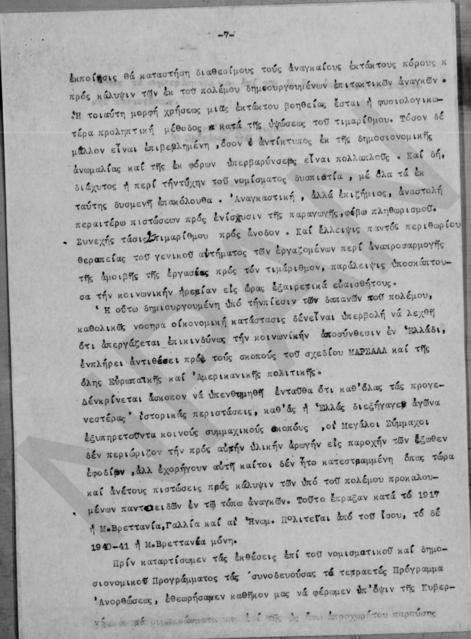 -7-
ἐκποίησις θά καταστήση διαθεσίμους τούς ἀναγκαίους ἐκτάκτους πόρους κ
πρός κάλυψιν τῶν ἐκ τοῦ πολέμου δημιουργουμένων ἐπιτακτικῶν ἀναγκῶν.
Ἡ τοιαύτη μορφή χρήσεως μιᾶς ἐκτάκτου βοηθείας ἔσται ἡ φυσιολογικω
τέρα προληπτική μέθοδος κατά τῆς ὑψώσεως τοῦ τιμαρίθμου. Τόσον δέ
μᾶλλον εἶναι ἐπιβεβλημένη, ὅσον ὁ ἀντίκτυπος ἐκ τῆς δημοσιονομικῆς
ἀνωμαλίας καί τῆς ἐκ φόρων ὑπερβαρύνσεως εἶναι πολλαπλοῦς. Καί δή,
διάχυτος ἡ περί τήντύχην τοῦ νομίσματος δυσπιστία, μέ ὅλα τά ἐκ
ταύτης δυσμενῆ ἐπακόλουθα. Ἀναγκαστική, ἀλλά ἐπιζήμιος, ἀναστολή
περαιτέρω πιστώσεων πρός ἐνίσχυσιν τῆς παραγωγῆς, φόβῳ πληθωρισμοῦ.
Συνεχής τάσις τιμαρίθμου πρός ἄνοδον. Καί ἔλλειψις παντός περιθωρίου
θεραπείας τοῦ γενικοῦ αἰτήματος τῶν ἐργαζομένων περί ἀναπροσαρμογῆς
τῆς ἀμοιβῆς τῆς ἐργασίας πρός τόν τιμάριθμον, παράλειψις ὑποσκάπτου-
σα τήν κοινωνικήν ἠρεμίαν εἰς ὥρας ἐξαιρετικά εὐαισθήτους.
Ἡ οὕτω δημιουργουμένη ὑπό τήνπίεσιν τῶν δαπανῶν τοῦ πολέμου,
καθολικῶς νοσηρά οἰκονομική κατάστασις δένεἶναι ὑπερβολή νά λεχθῇ
ὅτι ἀπεργάζεται ἐπικινδύνως τήν κοινωνικήν ἀποσύνθεσιν ἐν Ἑλλάδι,
ἐνπλήρει ἀντιθέσει πρός τούς σκοπούς τοῦ σχεδίου ΜΑΡΣΑΛΛ καί τῆς
ὅλης Εὐρωπαϊκῆς καί Ἀμερικανικῆς πολιτικῆς.
Δένκρίνεται ἄσκοπον νά ὑπενθυμηθῇ ἐνταῦθα ὅτι καθ'ὅλας τάς προγε-
νεστέρας ἱστορικάς περιστάσεις, καθ'ἅς ἡ Ἑλλάς διεξήγαγεν ἀγῶνα
ἐξυπηρετοῦντα κοινούς συμμαχικούς σκοπούς, οἱ Μεγάλοι Σύμμαχοι
δέν περιώριζον τήν πρός αὐτήν ὑλικήν ἀρωγήν εἰς παροχήν τῶν ἔξωθεν
ἐφοδίων, ἀλλ ἐχορήγουν αὐτῇ καίτοι δέν ἦτο κατεστραμμένη ὅπως τώρα
καί ἀνέτους πιστώσεις πρός κάλυψιν τῶν ὑπό τοῦ πολέμου προκαλου-
μένων παντοειδῶν ἐν τῷ τόπῳ ἀναγκῶν. Τοῦτο ἔπραξαν κατά τό 1917
ἡ Μ.Βρεττανία, Γαλλία καί αἱ Ἡνωμ. Πολιτεῖαι ἀπό τοῦ ἴσου, τό δέ
1940-41 ἡ Μ.Βρεττανία μόνη.
Πρίν καταρτίσωμεν τάς ἐκθέσεις ἐπί τοῦ νομισματικοῦ καί δημο-
σιονομικοῦ Προγράμματος τάς συνοδευούσας τό τετραετές Πρόγραμμα
Ἀνορθώσεως, ἐθεωρήσαμεν καθῆκον μας νά φέρωμεν ὑπ'ὄψιν τῆς Κυβερ-